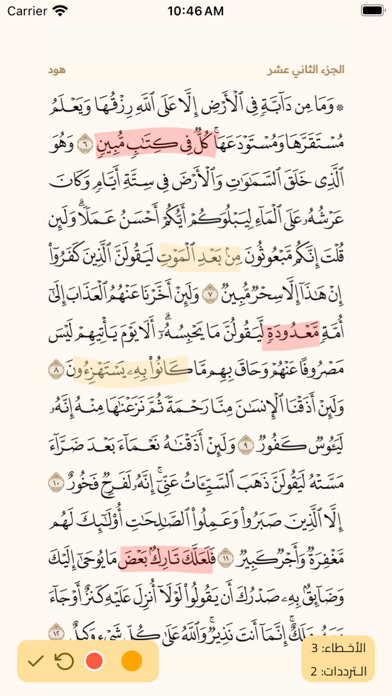 Carrier 10:46 AM
الجزء الثاني عشر هود
۞ وَمَا مِن دَآبَّةٍ فِي ٱلْأَرْضِ إِلَّا عَلَى ٱللَّهِ رِزْقُهَا وَيَعْلَمُ
مُسْتَقَرَّهَا وَمُسْتَوْدَعَهَاۚ كُلٌّ فِي كِتَٰبٍ مُّبِينٍ ٦ وَهُوَ
ٱلَّذِي خَلَقَ ٱلسَّمَٰوَٰتِ وَٱلْأَرْضَ فِي سِتَّةِ أَيَّامٍ وَكَانَ
عَرْشُهُۥ عَلَى ٱلْمَآءِ لِيَبْلُوَكُمْ أَيُّكُمْ أَحْسَنُ عَمَلًاۗ وَلَئِن
قُلْتَ إِنَّكُم مَّبْعُوثُونَ مِنۢ بَعْدِ ٱلْمَوْتِ لَيَقُولَنَّ ٱلَّذِينَ كَفَرُوٓاْ
إِنْ هَٰذَآ إِلَّا سِحْرٌ مُّبِينٌ ٧ وَلَئِنْ أَخَّرْنَا عَنْهُمُ ٱلْعَذَابَ إِلَىٰٓ
أُمَّةٍ مَّعْدُودَةٍ لَّيَقُولُنَّ مَا يَحْبِسُهُۥٓۗ أَلَا يَوْمَ يَأْتِيهِمْ لَيْسَ
مَصْرُوفًا عَنْهُمْ وَحَاقَ بِهِم مَّا كَانُواْ بِهِۦ يَسْتَهْزِءُونَ ٨
وَلَئِنْ أَذَقْنَا ٱلْإِنسَٰنَ مِنَّا رَحْمَةً ثُمَّ نَزَعْنَٰهَا مِنْهُ إِنَّهُۥ
لَيَـُٔوسٌ كَفُورٌ ٩ وَلَئِنْ أَذَقْنَٰهُ نَعْمَآءَ بَعْدَ ضَرَّآءَ
مَسَّتْهُ لَيَقُولَنَّ ذَهَبَ ٱلسَّيِّـَٔاتُ عَنِّيٓۚ إِنَّهُۥ لَفَرِحٌ فَخُورٌ ١٠
إِلَّا ٱلَّذِينَ صَبَرُواْ وَعَمِلُواْ ٱلصَّٰلِحَٰتِ أُوْلَٰٓئِكَ لَهُم
مَّغْفِرَةٌ وَأَجْرٌ كَبِيرٌ ١١ فَلَعَلَّكَ تَارِكٌۢ بَعْضَ مَا يُوحَىٰٓ إِلَيْكَ
وَضَآئِقٌۢ بِهِۦ صَدْرُكَ أَن يَقُولُواْ لَوْلَآ أُنزِلَ عَلَيْهِ كَنزٌ أَوْ جَآءَ
مَعَهُۥ مَلَكٌۚ إِنَّمَآ أَنتَ نَذِيرٌۚ وَٱللَّهُ عَلَىٰ كُلِّ شَيْءٍ وَكِيلٌ ١٢
الأخطاء: 3
الترددات: 2